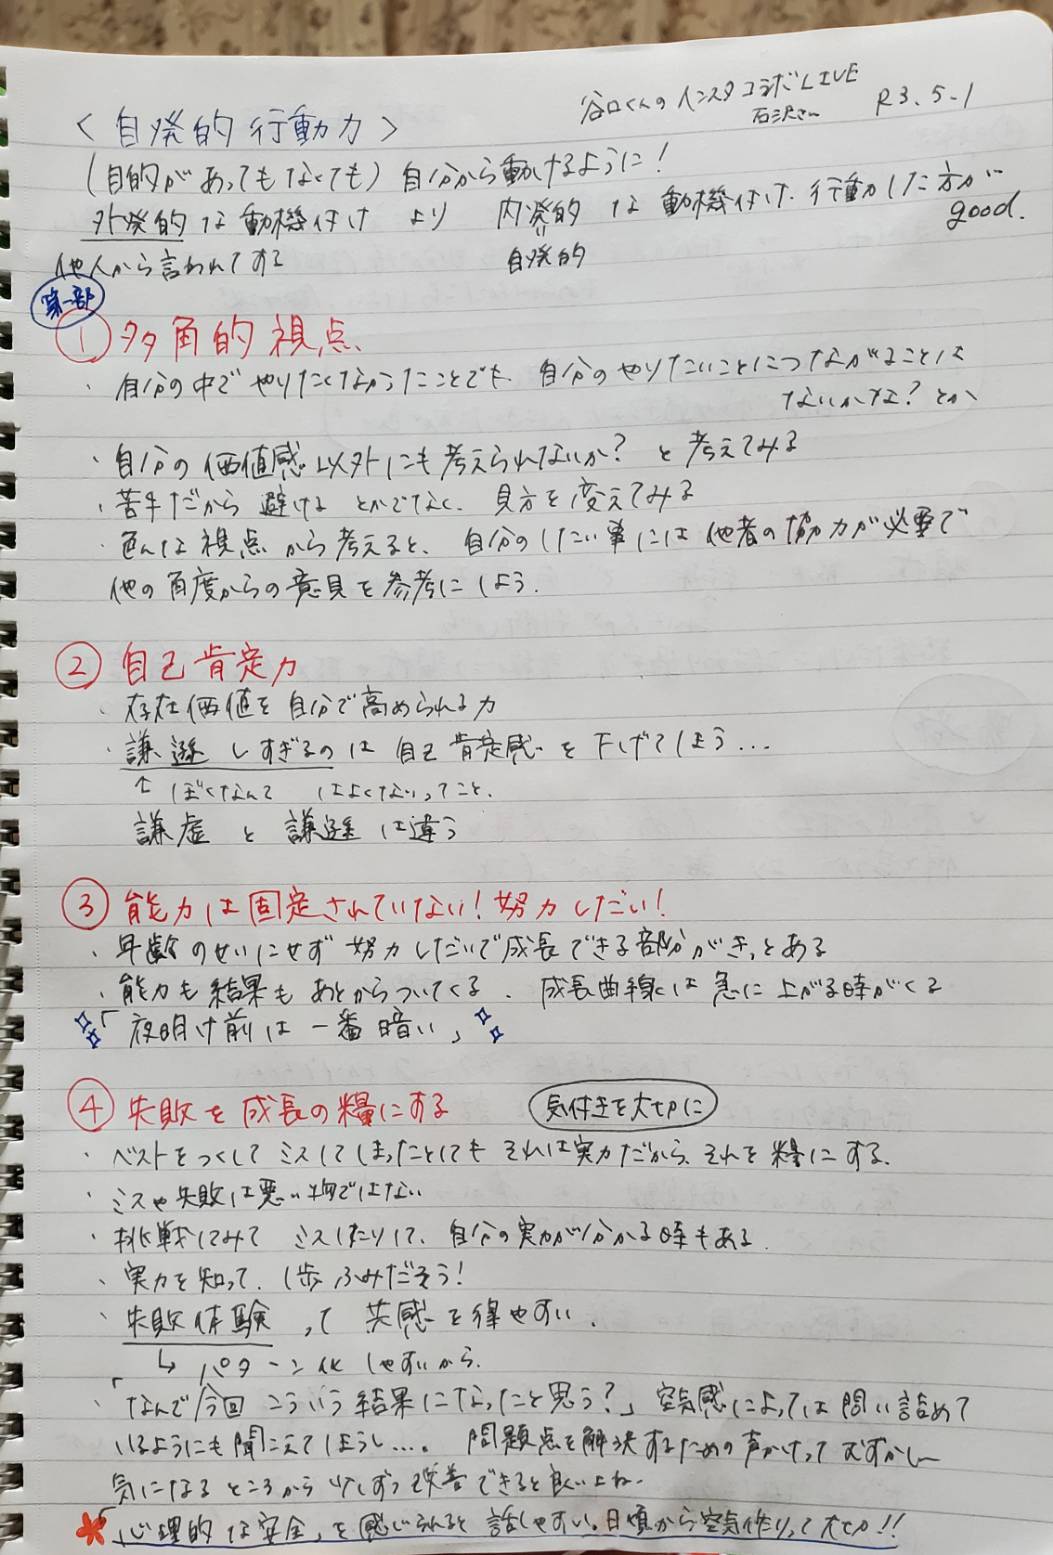 谷口くんのインスタコラボLIVE
石沢さん
R3.5.1
〈自発的行動力〉
(目的があってもなくても)自分から動けるように!
外発的な動機付けより 内発的な動機付け、行動した方が
good.
他人から言われてする
自発的
第一部
① 多角的視点
・自分の中でやりたくなかったことでも、自分のやりたいことにつながることは
ないかな?とか
・自分の価値感以外にも考えられないか?と考えてみる
・苦手だから避けるとかでなく、見方を変えてみる
・色んな視点から考えると、自分のしたい事には他者の協力が必要で
他の角度からの意見を参考にしよう.
② 自己肯定力
・存在価値を自分で高められる力
・謙遜しすぎるのは自己肯定感を下げてしまう...
↑ぼくなんて はよくないってこと.
謙虚と謙遜は違う
③ 能力は固定されていない!努力しだい!
・年齢のせいにせず努力しだいで成長できる部分がきっとある
・能力も結果もあとからついてくる. 成長曲線は急に上がる時がくる
「夜明け前は一番暗い」
④ 失敗を成長の糧にする
気付きを大切に
・ベストをつくしてミスしてしまったとしてもそれは実力だから、それを糧にする.
・ミスや失敗は悪い物ではない
・挑戦してみてミスしたりして、自分の実力が分かる時もある.
・実力を知って、1歩ふみだそう!
・失敗体験って共感を得やすい.
↳パターン化しやすいから.
・「なんで今回こういう結果になったと思う?」空気感によっては問い詰めて
いるようにも聞こえてしまうし.... 問題点を解決するための声かけってむずかしー
気になるところから少しずつ改善できると良いよね.
「心理的な安全」を感じられると話しやすい。日頃から空気作りって大切!!